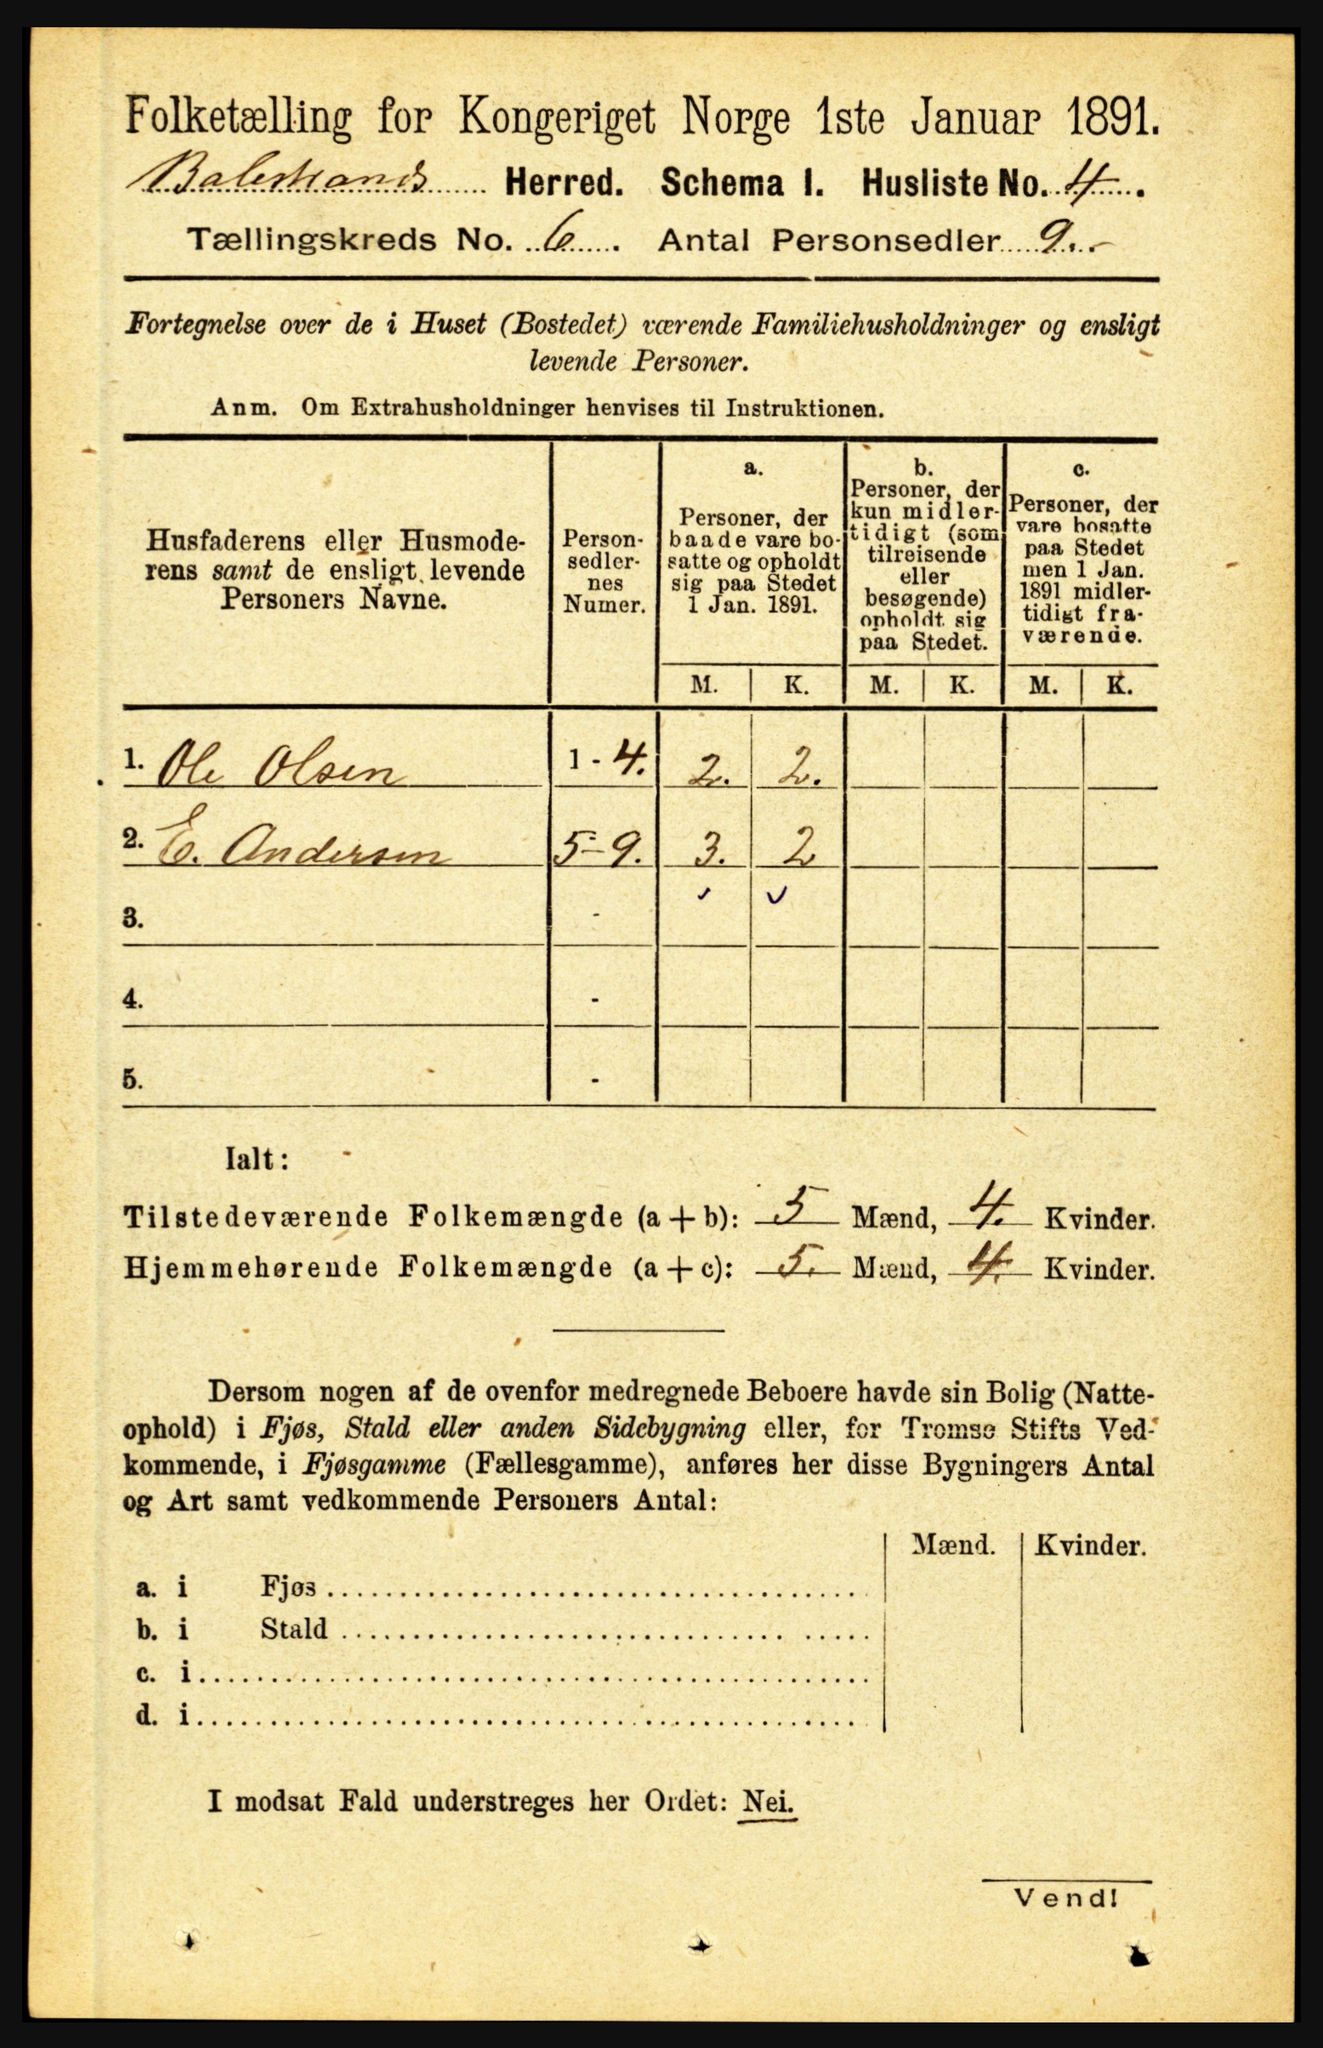 Folketælling for Kongeriget Norge 1ste Januar 1891.
Balestrands Herred. Schema I. Husliste No. 4.
Tællingskreds No. 6. Antal Personsedler 9.
Fortegnelse over de i Huset (Bostedet) værende Familiehusholdninger og ensligt
levende Personer.
Anm. Om Extrahusholdninger henvises til Instruktionen.
Husfaderens eller Husmode-
rens samt de ensligt levende
Personers Navne.
Person-
sedler-
nes
Numer.
a.
Personer, der
baade vare bo-
satte og opholdt
sig paa Stedet
1 Jan. 1891.
b.
Personer, der
kun midler-
tidigt (som
tilreisende
eller
besøgende)
opholdt sig
paa Stedet.
c.
Personer, der
vare bosatte
paa Stedet
men 1 Jan.
1891 midler-
tidigt fra-
værende.
M. K. M. K. M. K.
1. Ole Olsen 1 - 4. 2. 2.
2. E. Andersen 5-9. 3. 2
3. -
4. -
5. -
Ialt:
Tilstedeværende Folkemængde (a + b): 5 Mænd, 4. Kvinder.
Hjemmehørende Folkemængde (a + c): 5. Mænd, 4. Kvinder.
Dersom nogen af de ovenfor medregnede Beboere havde sin Bolig (Natte-
ophold) i Fjøs, Stald eller anden Sidebygning eller, for Tromsø Stifts Ved-
kommende, i Fjøsgamme (Fællesgamme), anføres her disse Bygningers Antal
og Art samt vedkommende Personers Antal:
Mænd. Kvinder.
a. i Fjøs
b. i Stald
c. i
d. i
I modsat Fald understreges her Ordet: Nei.
Vend!